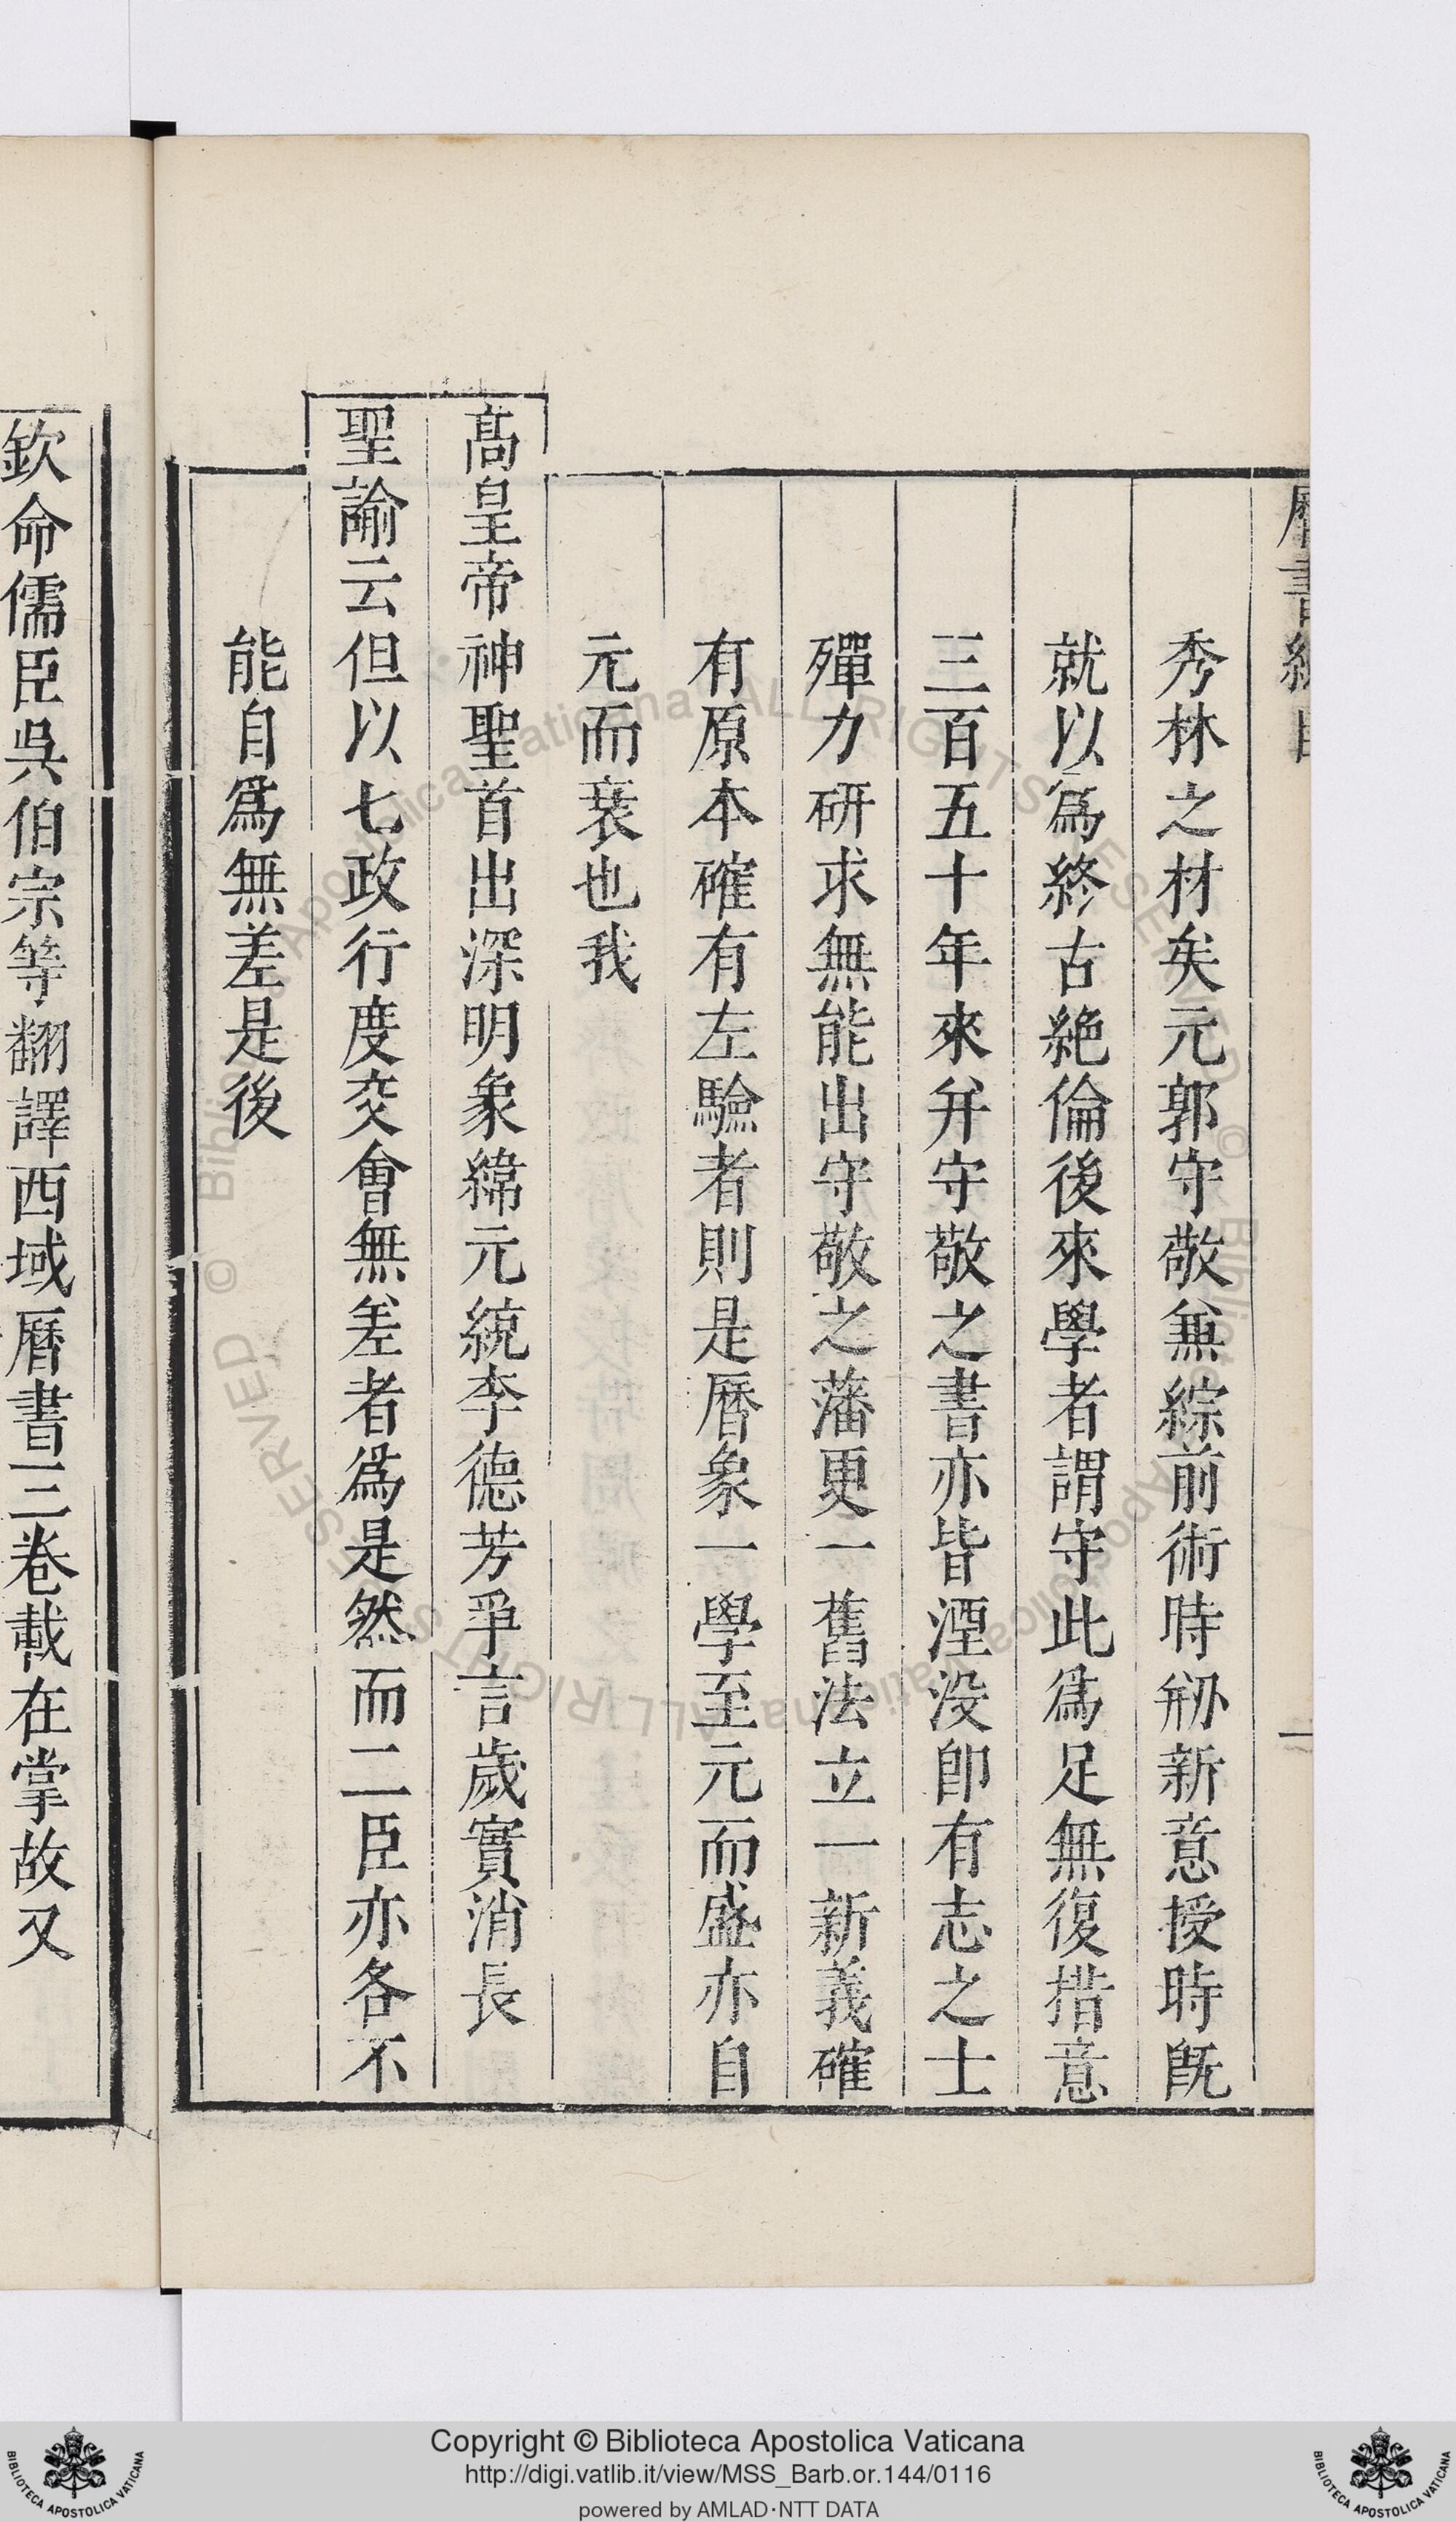 秀林之材矣元郭守敬兼綜前術時剏新意授時旣
就以爲終古絶倫後來學者謂守此爲足無復措意
三百五十年來并守敬之書亦皆湮没卽有志之士
殫力研求無能出守敬之藩更一舊法立一新義確
有原本確有左驗者則是曆象一學至元而盛亦自
元而衰也我
高皇帝神聖首出深明象緯元統李德芳爭言歲實消長
聖諭云但以七政行度交會無差者爲是然而二臣亦各不
能自爲無差是後
欽命儒臣吳伯宗等翻譯西域曆書三卷載在掌故又
Copyright © Biblioteca Apostolica Vaticana
http://digi.vatlib.it/view/MSS_Barb.or.144/0116
powered by AMLAD·NTT DATA
BIBLIOTECA APOSTOLICA VATICANA
BIBLIOTECA APOSTOLICA VATICANA